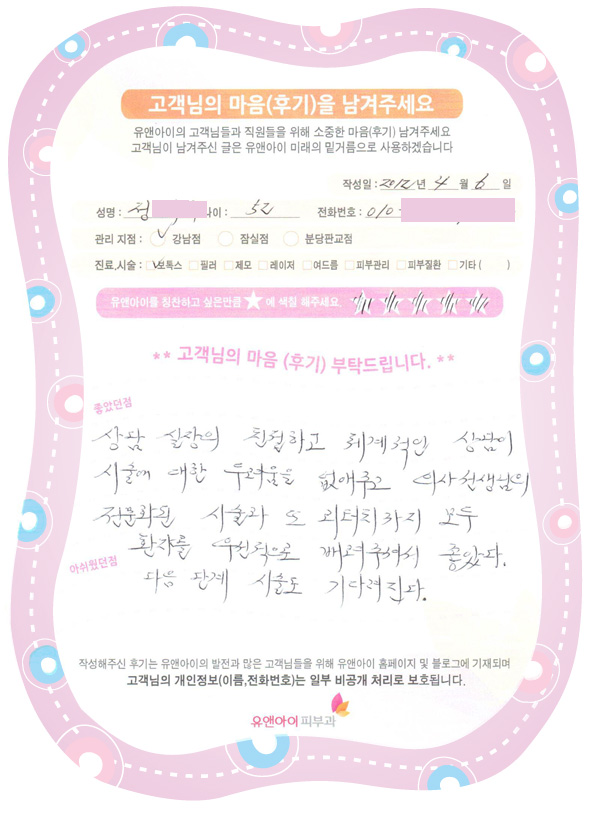 고객님의 마음(후기)을 남겨주세요
유앤아이의 고객님들과 직원들을 위해 소중한 마음(후기) 남겨주세요
고객님이 남겨주신 글은 유앤아이 미래의 밑거름으로 사용하겠습니다
작성일 : 2012 년 4 월 6 일
성명 : 정 나이 : 52 전화번호 : 010-
관리 지점 : 강남점 잠실점 분당판교점
진료,시술 : 보톡스 필러 제모 레이저 여드름 피부관리 피부질환 기타 ( )
유앤아이를 칭찬하고 싶은만큼 ★ 에 색칠 해주세요
** 고객님의 마음 (후기) 부탁드립니다. **
좋았던점
상담 실장의 친절하고 체계적인 상담이
시술에 대한 두려움을 없애주고 의사선생님의
전문화된 시술과 또 리터치까지 모두
환자를 우선적으로 배려주셔서 좋았다.
아쉬웠던점
다음 단계 시술도 기다려진다.
작성해주신 후기는 유앤아이의 발전과 많은 고객님들을 위해 유앤아이 홈페이지 및 블로그에 기재되며
고객님의 개인정보(이름,전화번호)는 일부 비공개 처리로 보호됩니다.
유앤아이피부과